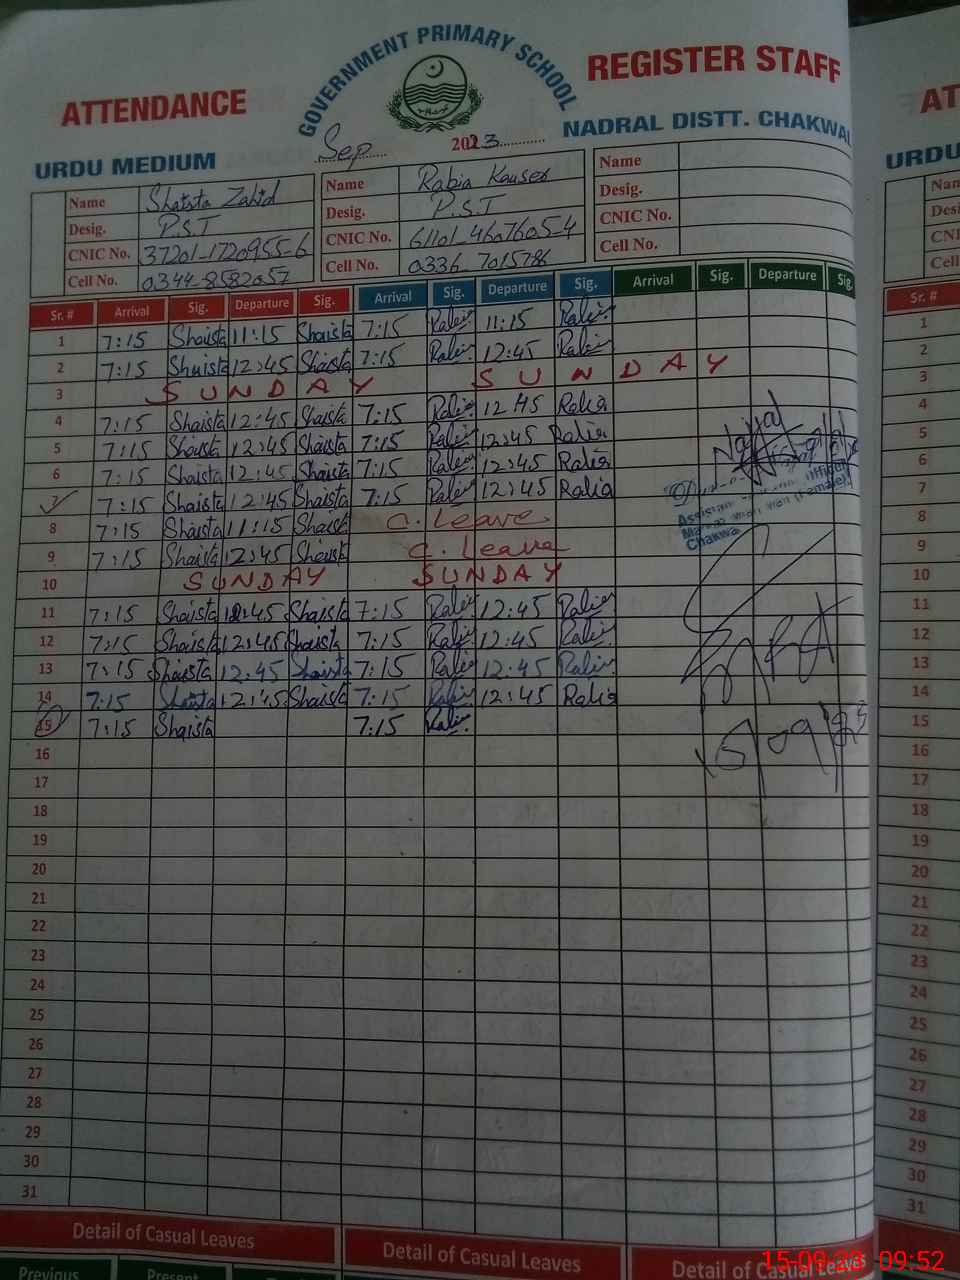 GOVERNMENT PRIMARY SCHOOL
ATTENDANCE REGISTER STAFF
URDU MEDIUM Sep 2023 NADRAL DISTT. CHAKWAL
Name Shaista Zahid Name Rabia Kauser Name
Desig. P.S.T Desig. P.S.T Desig.
CNIC No. 37201-1720955-6 CNIC No. 61101-4607605-4 CNIC No.
Cell No. 0344-8582057 Cell No. 0336-7015786 Cell No.
Sr. # Arrival Sig. Departure Sig. Arrival Sig. Departure Sig. Arrival Sig. Departure Sig.
1 7:15 Shaista 11:15 Shaista 7:15 Rabia 11:15 Rabia
2 7:15 Shaista 12:45 Shaista 7:15 Rabia 12:45 Rabia
3 SUNDAY SUNDAY
4 7:15 Shaista 12:45 Shaista 7:15 Rabia 12:45 Rabia
5 7:15 Shaista 12:45 Shaista 7:15 Rabia 12:45 Rabia
6 7:15 Shaista 12:45 Shaista 7:15 Rabia 12:45 Rabia
7 7:15 Shaista 12:45 Shaista 7:15 Rabia 12:45 Rabia
8 7:15 Shaista 11:15 Shaista C. Leave
9 7:15 Shaista 12:45 Shaista C. Leave
10 SUNDAY SUNDAY
11 7:15 Shaista 12:45 Shaista 7:15 Rabia 12:45 Rabia
12 7:15 Shaista 12:45 Shaista 7:15 Rabia 12:45 Rabia
13 7:15 Shaista 12:45 Shaista 7:15 Rabia 12:45 Rabia
14 7:15 Shaista 12:45 Shaista 7:15 Rabia 12:45 Rabia
15 7:15 Shaista 7:15 Rabia 15/09/23
16
17
18
19
20
21
22
23
24
25
26
27
28
29
30
31
Detail of Casual Leaves Detail of Casual Leaves Detail of Casual Leaves
Previous Present
Chakwal
AT
URDU
Nam
Desi
CNI
Cell
Sr. #
1
2
3
4
5
6
7
8
9
10
11
12
13
14
15
16
17
18
19
20
21
22
23
24
25
26
27
28
29
30
31
15-09-23 09:52